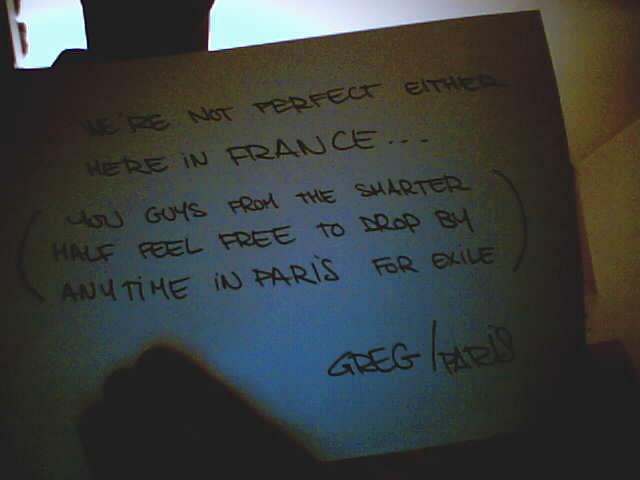 WE'RE NOT PERFECT EITHER
HERE IN FRANCE...
(YOU GUYS FROM THE SMARTER
HALF FEEL FREE TO DROP BY
ANYTIME IN PARIS FOR EXILE)
GREG/PARIS